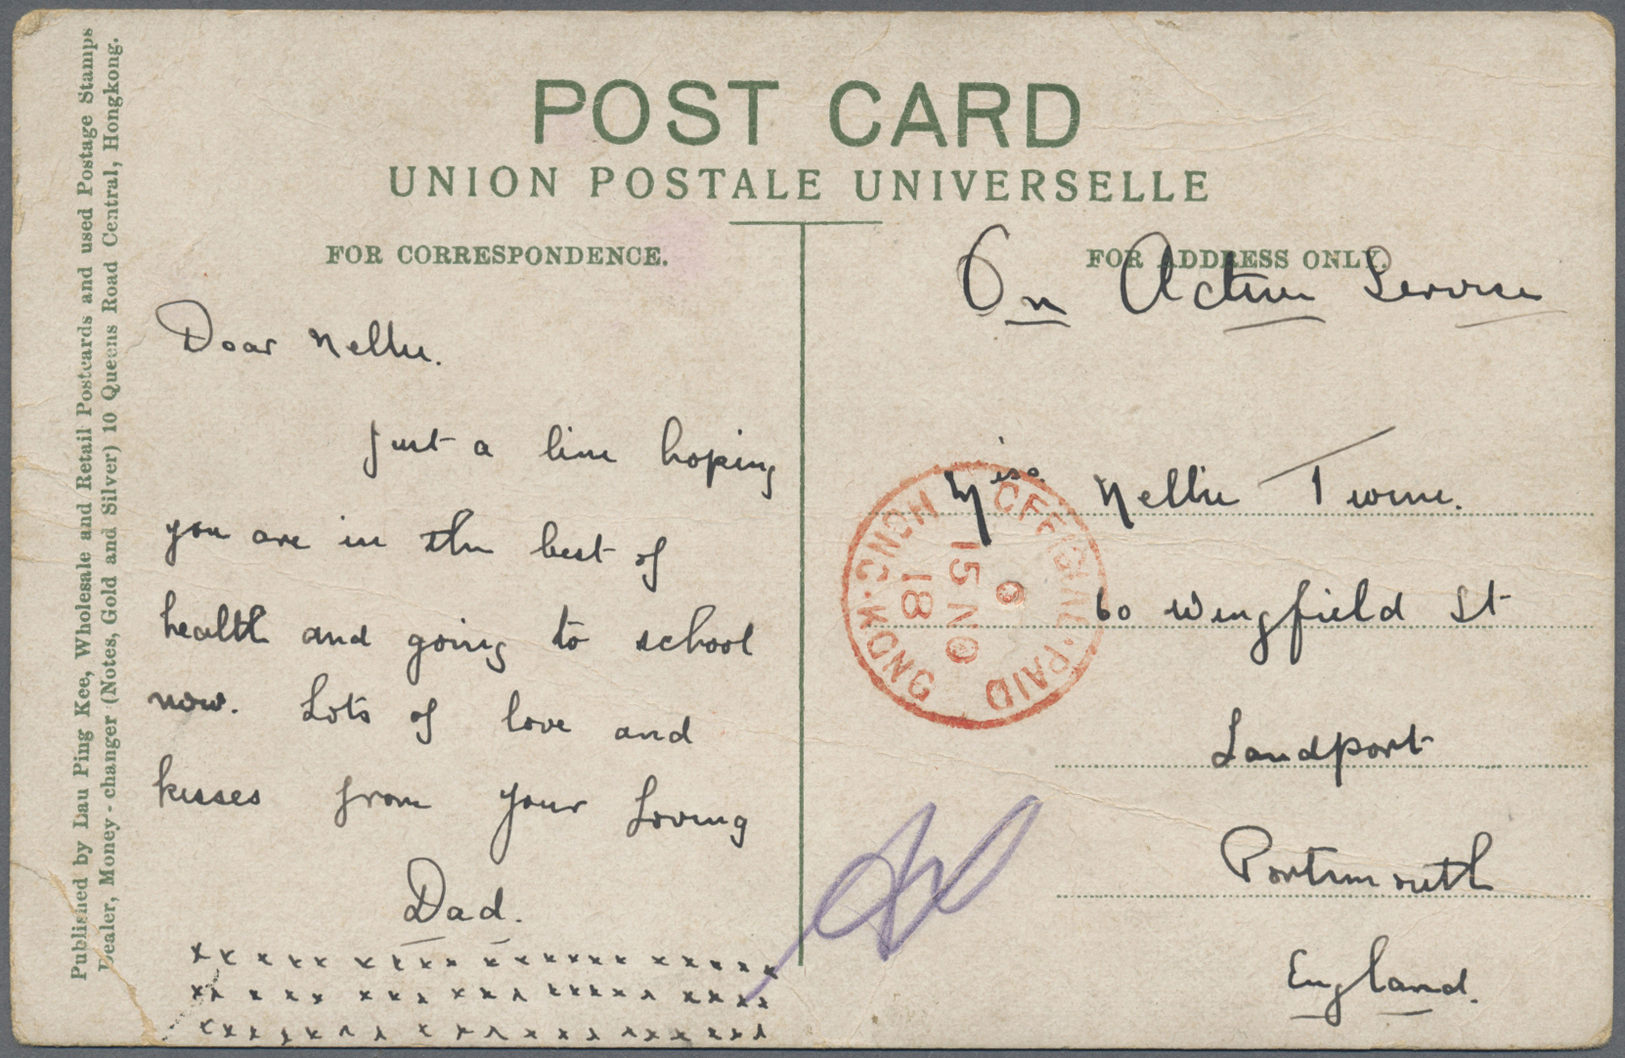 POST CARD
UNION POSTALE UNIVERSELLE
FOR CORRESPONDENCE.
FOR ADDRESS ONLY.
Published by Lau Ping Kee, Wholesale and Retail Postcards and used Postage Stamps
Dealer, Money-changer (Notes, Gold and Silver) 10 Queens Road Central, Hongkong.
Dear Nellie.
Just a line hoping
you are in the best of
health and going to school
now. Lots of love and
kisses from your Loving
Dad.
x x x x x x x x x x x x x x x x x x x x
x x x x x x x x x x x x x x x x x x x
x x x x x x x x x x x x x x x x x x x
On Active Service
Miss. Nellie Twine.
60 Wingfield St
Landport
Portsmouth
England.
HONG·KONG
OFFICIAL·PAID
6
15 NO
18